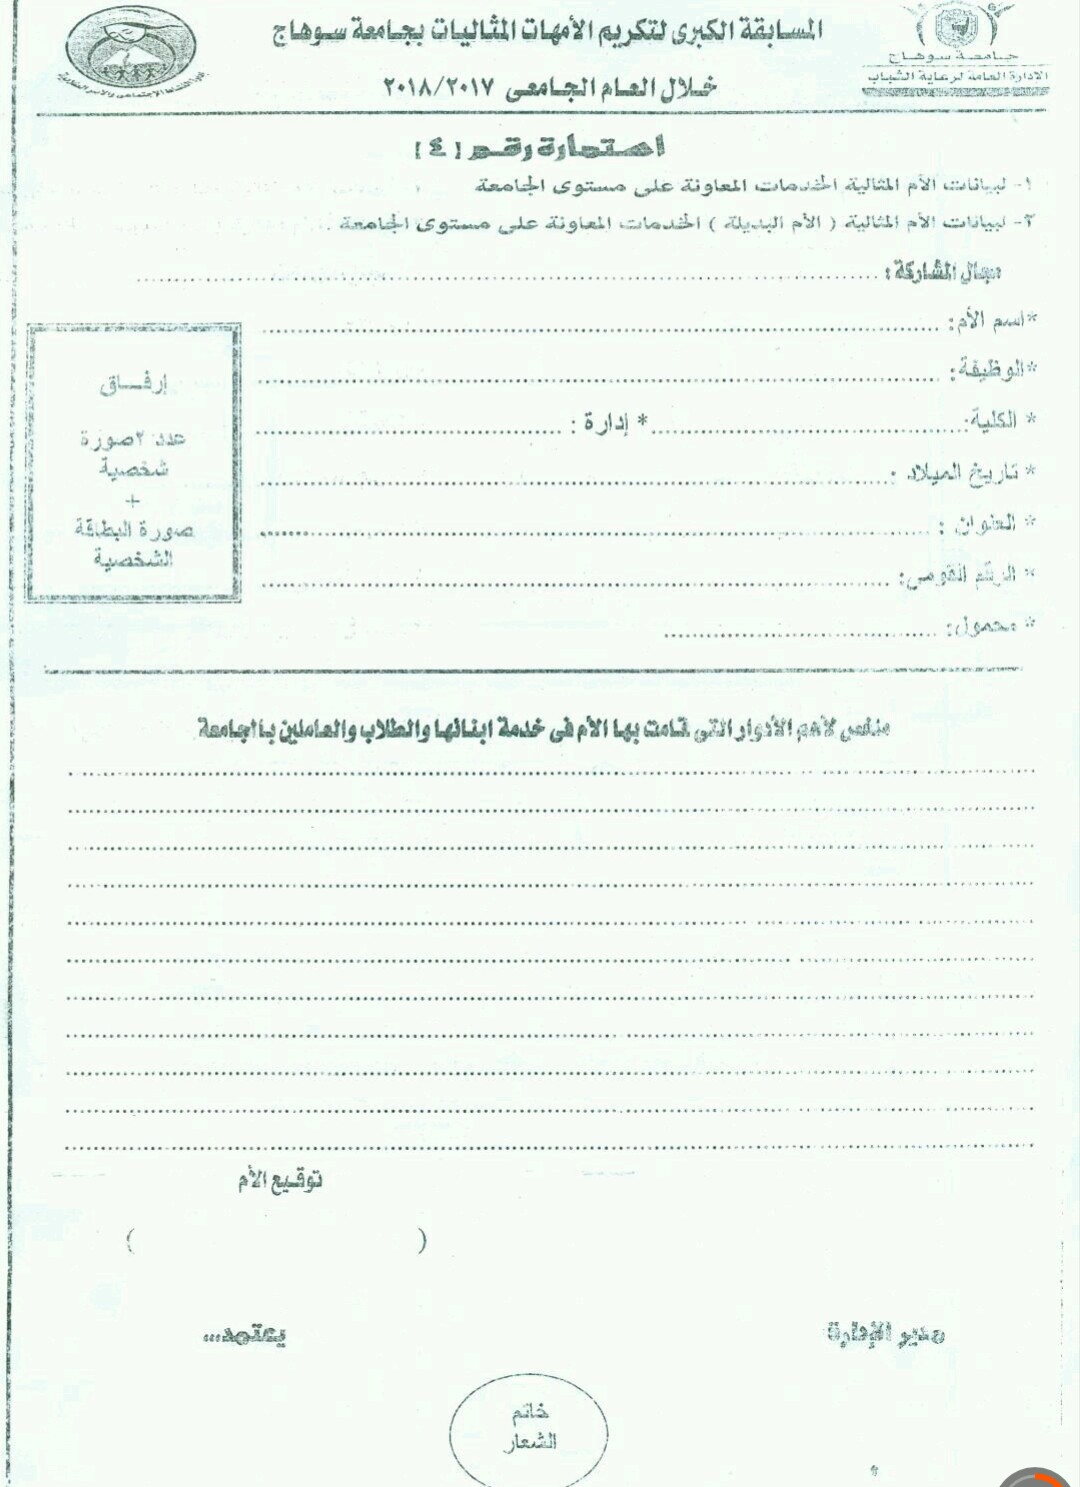 المسابقة الكبرى لتكريم الأمهات المثاليات بجامعة سوهاج
خلال العام الجامعى ٢٠١٨/٢٠١٧
جامعة سوهاج
الادارة العامة لرعاية الشباب
استمارة رقم [ ٤ ]
١- لبيانات الأم المثالية الخدمات المعاونة على مستوى الجامعة
٢- لبيانات الأم المثالية ( الأم البديلة ) الخدمات المعاونة على مستوى الجامعة .
مجال المشاركة :
*اسم الأم:
*الوظيفة:
* الكلية: * إدارة :
* تاريخ الميلاد :
* العنوان :
* الرقم القومى:
* محمول:
إرفاق
عدد ٢صورة
شخصية
+
صورة البطاقة
الشخصية
ملخص لأهم الأدوار التى قامت بها الأم فى خدمة ابنائها والطلاب والعاملين بالجامعة
توقيع الأم
( )
مدير الإدارة
يعتمد...
خاتم
الشعار